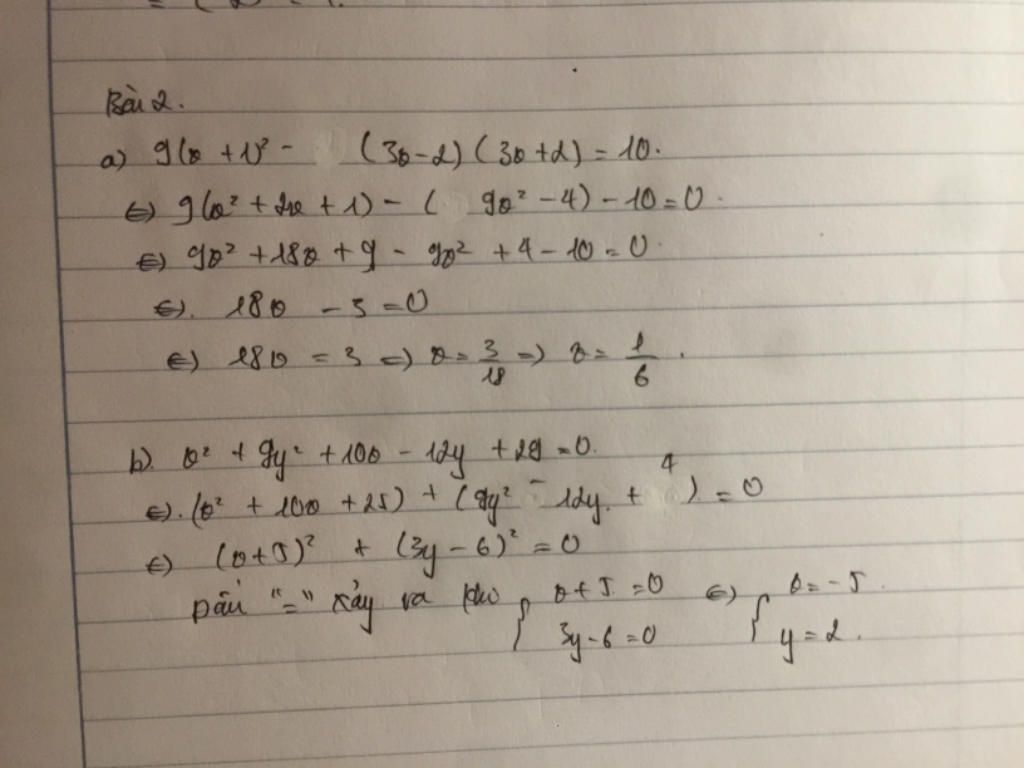 Bài 2.
a) 9(x+1)² - (3x-2)(3x+2) = 10.
⇔) 9(x² + 2x + 1) - ( 9x² - 4) - 10 = 0.
⇔) 9x² + 18x + 9 - 9x² + 4 - 10 = 0.
⇔). 18x - 3 = 0
⇔) 18x = 3 => x = 3/18 => x = 1/6.
b). x² + 9y² + 10x - 12y + 29 = 0.
⇔). (x² + 10x + 25) + (9y² - 12y. + 4) = 0
⇔) (x+5)² + (3y - 6)² = 0
Dấu "=" xảy ra khi { x + 5 = 0 ⇔) { x = -5.
3y - 6 = 0 y = 2.